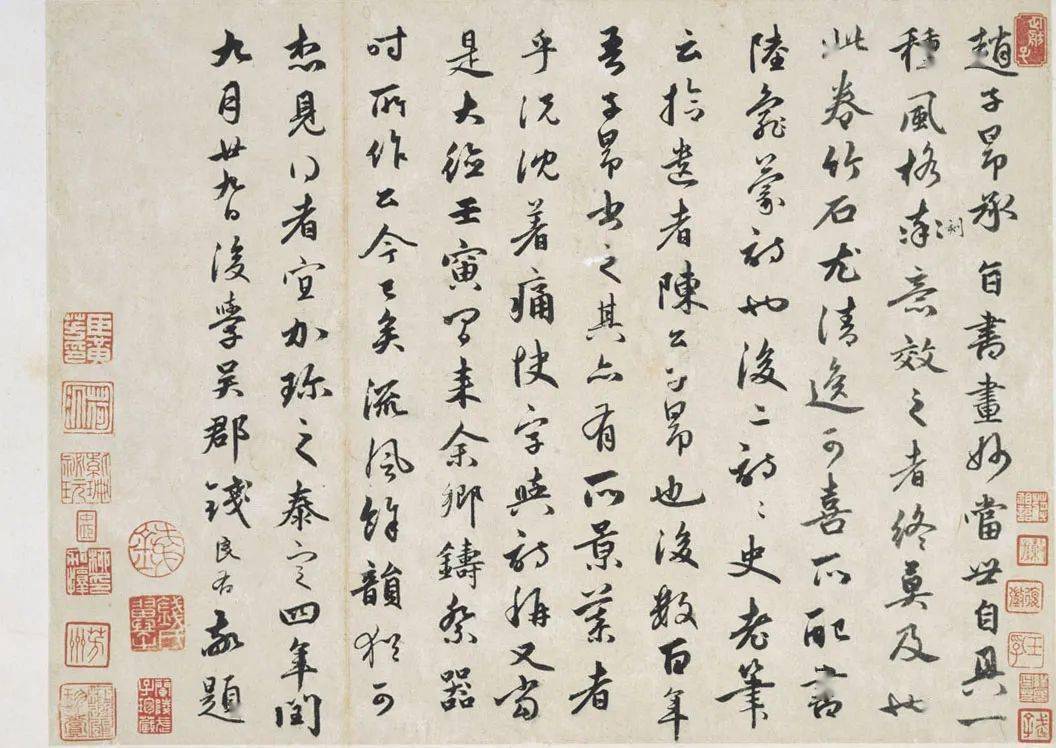 趙子昂承旨書畫妙當世自具一
種風格刻意效之者終莫及也
此卷竹石尤清逸可喜所配書
陸龜蒙詩也後二詩〻史老筆
云拾遺者陳公子昂也後數百年
吾子昂書之其亦有所景慕者
乎況沈着痛快字與詩稱又當
是大德壬寅間来余鄉鑄祭器
時所作公今已矣流風餘韻猶可
想見得者宜加珍之泰定四年閏
九月廿九日後學吳郡錢良右敬題